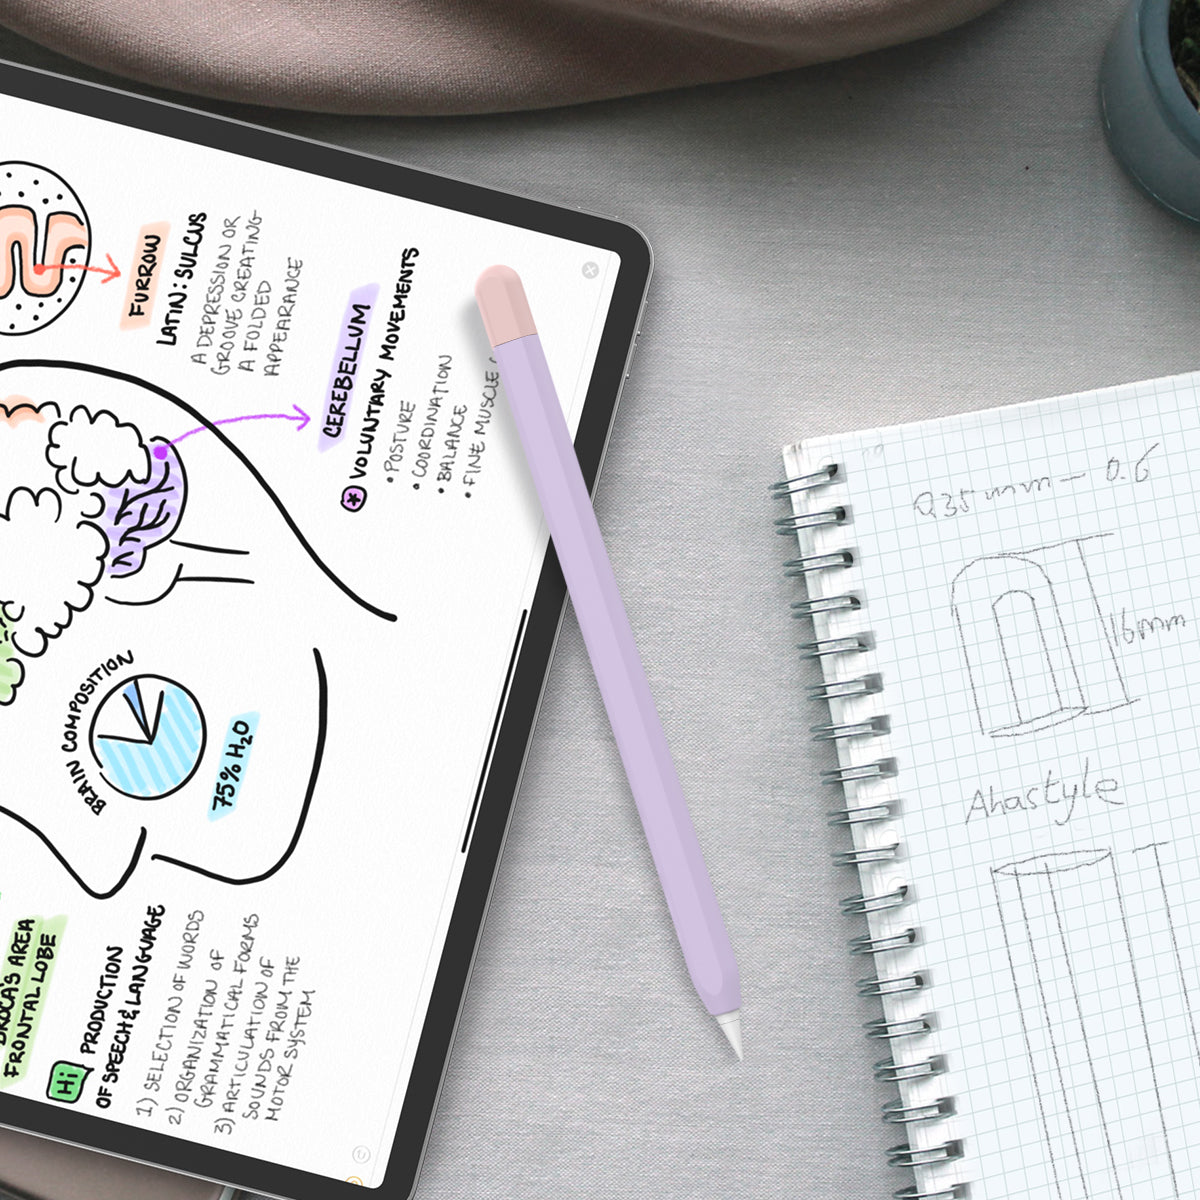 FURROW
LATIN: SULCUS
A DEPRESSION OR
GROOVE CREATING
A FOLDED
APPEARANCE
CEREBELLUM
* VOLUNTARY MOVEMENTS
• POSTURE
• COORDINATION
• BALANCE
• FINE MUSCLE
BRAIN COMPOSITION
75% H₂O
BROCA'S AREA
FRONTAL LOBE
Hi PRODUCTION
OF SPEECH & LANGUAGE
1) SELECTION OF WORDS
2) ORGANIZATION OF
GRAMMATICAL FORMS
3) ARTICULATION OF
SOUNDS FROM THE
MOTOR SYSTEM
0.35mm - 0.6
16mm
Ahastyle